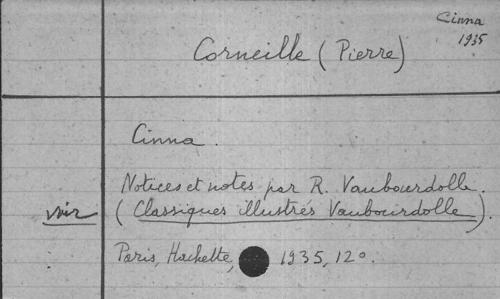 Cinna
1935
Corneille (Pierre)
Cinna.
Notices et notes par R. Vaubourdolle.
voir (Classiques illustrés Vaubourdolle).
Paris, Hachette, 1935, 12°.